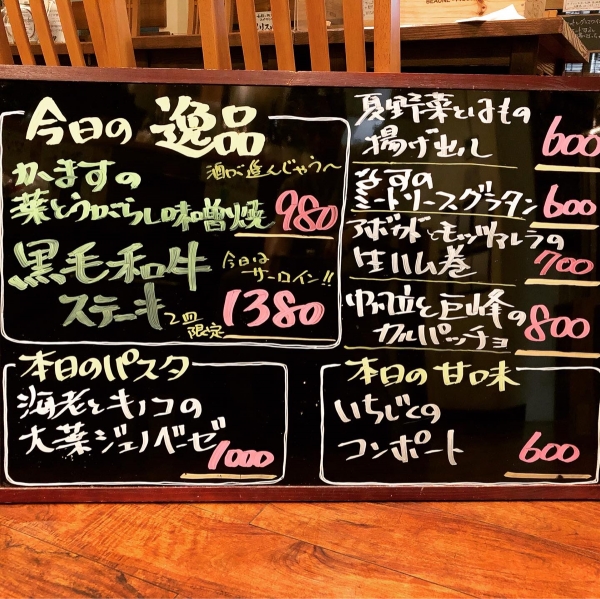 今日の 逸品
かますの
酒が進んじゃう〜
葉とうがらし味噌焼 980
黒毛和牛
今日は
サーロイン!!
ステーキ
2皿
限定
1380
夏野菜とはもの
揚げ出し 600
なすの
ミートソースグラタン 600
アボカドとモッツァレラの
生ハム巻 700
帆立と巨峰の
カルパッチョ 800
本日のパスタ
海老とキノコの
大葉ジェノベーゼ
1000
本日の甘味
いちじくの
コンポート 600